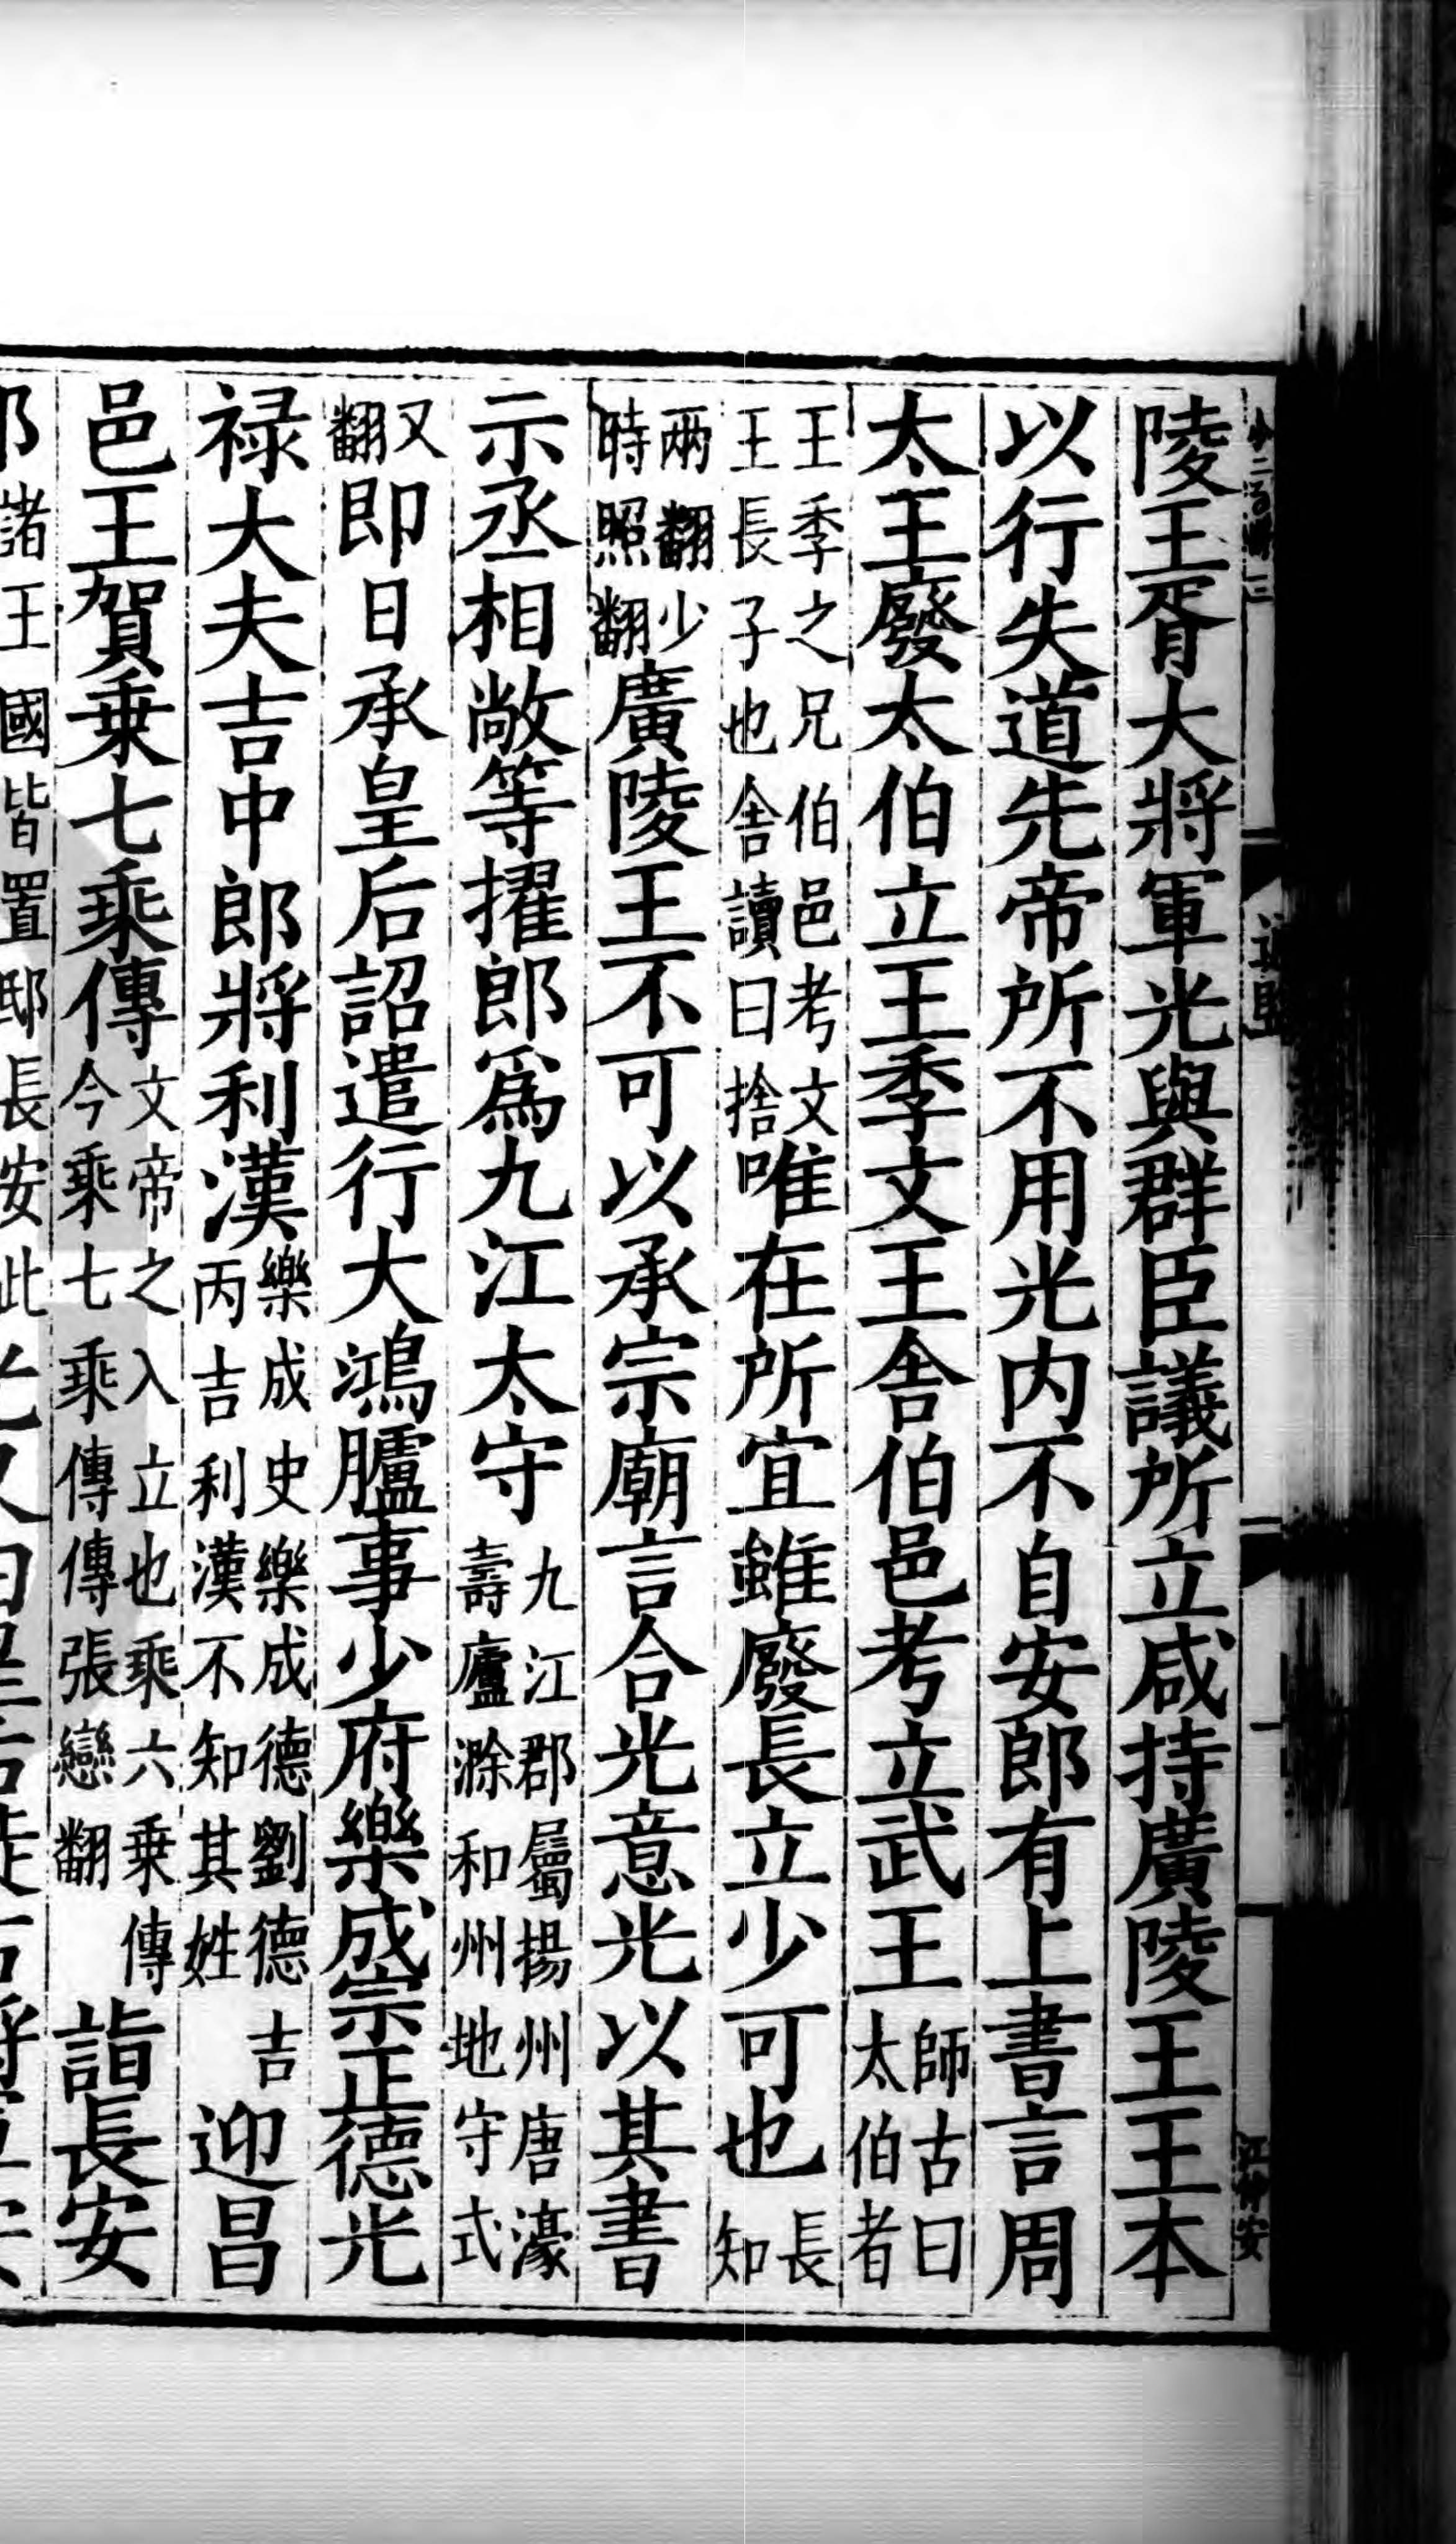 陵王胥大將軍光與群臣議所立咸持廣陵王王本
以行失道先帝所不用光内不自安郎有上書言周
太王廢太伯立王季文王舍伯邑考立武王師古曰太伯者
王季之兄伯邑考文王長子也舍讀曰捨唯在所宜雖廢長立少可也長知
兩翻少時照翻廣陵王不可以承宗廟言合光意光以其書
示丞相敞等擢郎爲九江太守九江郡屬揚州唐濠壽廬滁和州地守式
又翻即日承皇后詔遣行大鴻臚事少府樂成宗正德光
禄大夫吉中郎將利漢樂成史樂成德劉德吉丙吉利漢不知其姓迎昌
邑王賀乗七乘傳文帝之入立也乘六乗傳今乘七乘傳傳張戀翻詣長安
諸王國皆置邸長安此